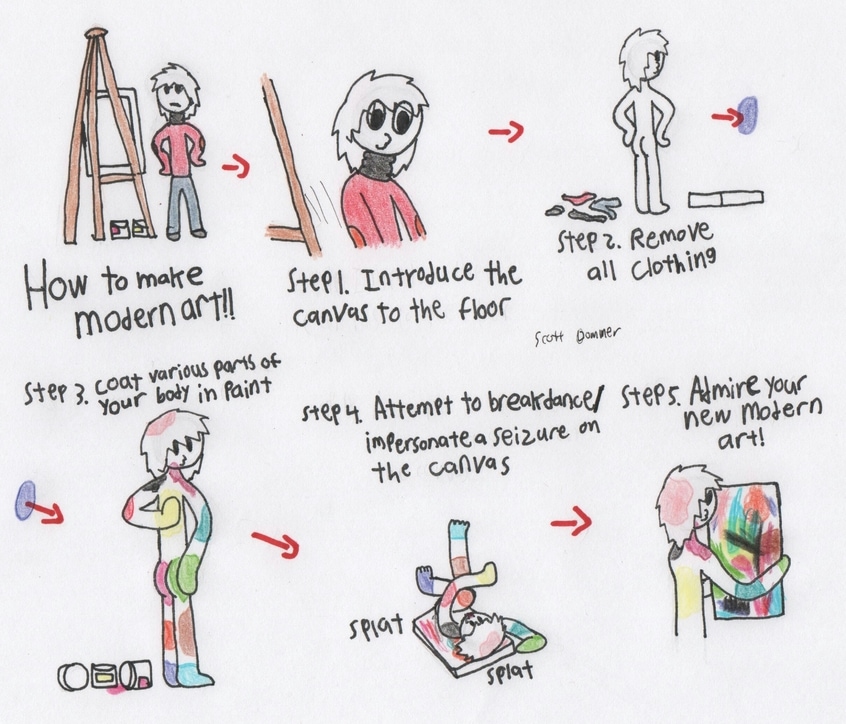 How to make
modern art!!
Step 1. Introduce the
canvas to the floor
Step 2. Remove
all clothing
Scott Dommer
Step 3. Coat various parts of
your body in paint
Step 4. Attempt to breakdance/
impersonate a seizure on
the canvas
splat
splat
Step 5. Admire your
new modern
art!